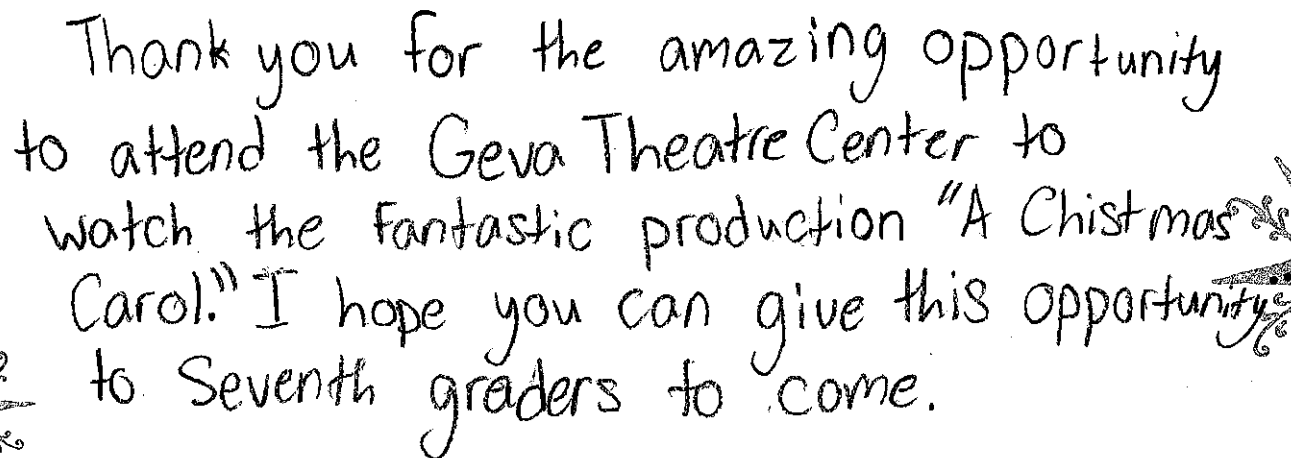 Thank you for the amazing opportunity
to attend the Geva Theatre Center to
watch the fantastic production "A Chistmas
Carol." I hope you can give this opportunity
to Seventh graders to come.